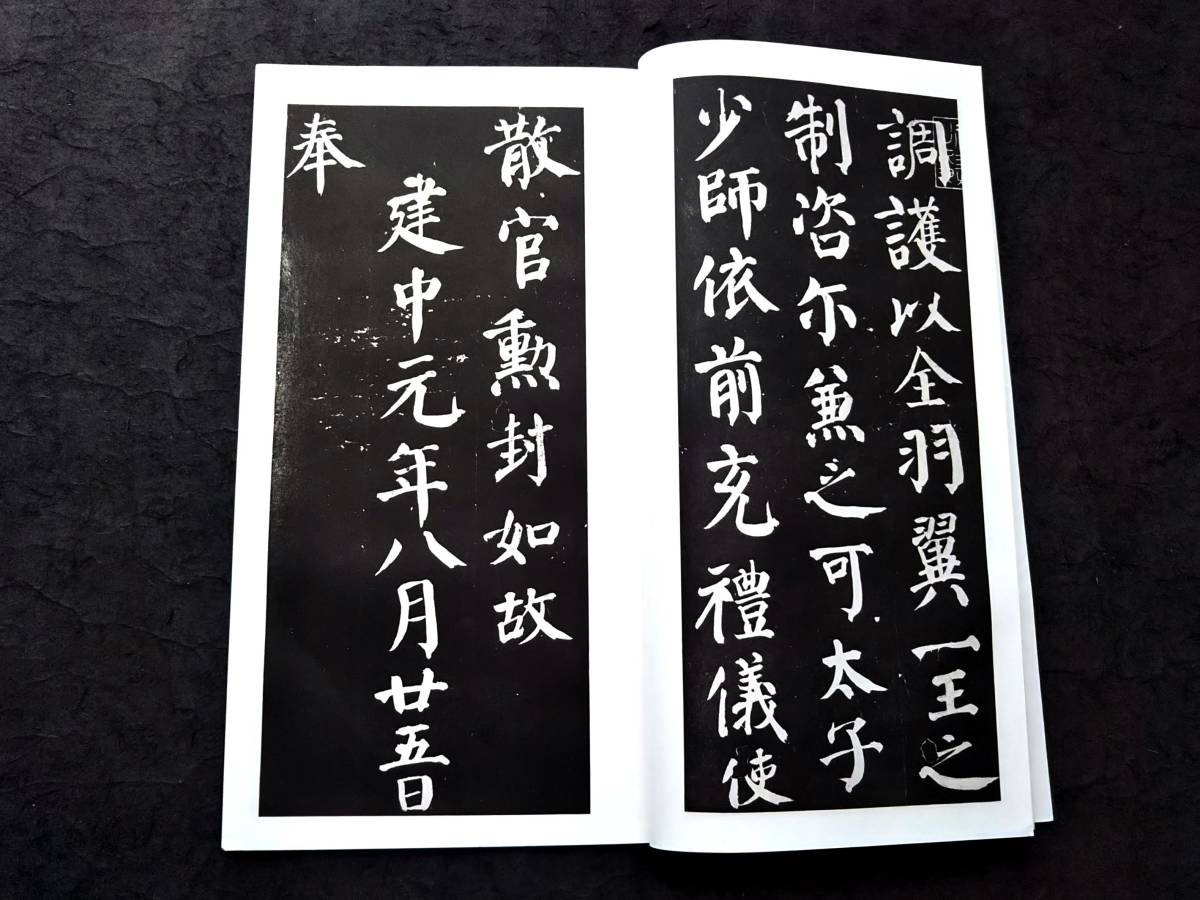 調護以全羽翼一王之
制咨尔兼之可太子
少師依前充禮儀使
散官勲封如故
建中元年八月廿五日
奉